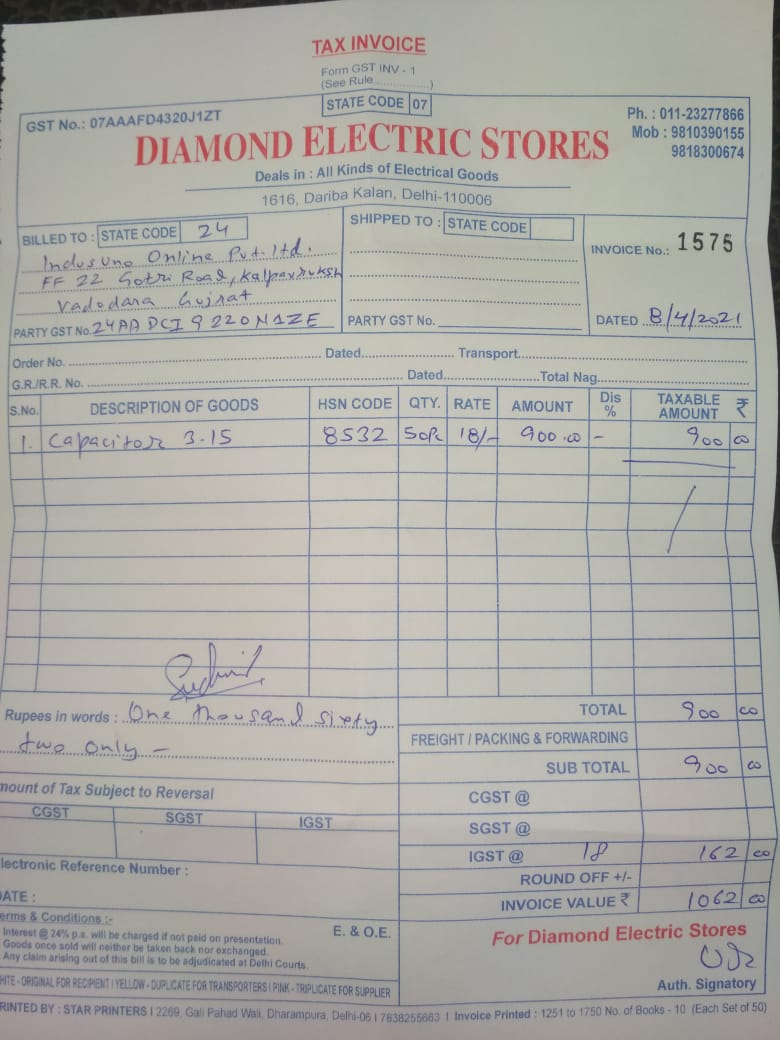 TAX INVOICE
Form GST INV - 1
(See Rule................)
STATE CODE 07
GST No.: 07AAAFD4320J1ZT
Ph. : 011-23277866
Mob : 9810390155
9818300674
DIAMOND ELECTRIC STORES
Deals in : All Kinds of Electrical Goods
1616, Dariba Kalan, Delhi-110006
BILLED TO : STATE CODE 24
Indusuno Online Pvt. ltd.
FF 22 Gotri Road, Kalpavruksh
Vadodara Gujrat
PARTY GST No. 24AADCI9220N1ZE
SHIPPED TO : STATE CODE
PARTY GST No.
INVOICE No.: 1575
DATED 8/4/2021
Order No. Dated Transport
G.R./R.R. No. Dated Total Nag
S.No. DESCRIPTION OF GOODS HSN CODE QTY. RATE AMOUNT Dis % TAXABLE AMOUNT ₹
1. Capacitor 3.15 8532 50Pc 18/- 900.00 - 900 00
Rupees in words : One thousand sixty
two only -
TOTAL 900 00
FREIGHT / PACKING & FORWARDING
SUB TOTAL 900 00
mount of Tax Subject to Reversal
CGST SGST IGST
CGST @
SGST @
IGST @ 18 162 00
lectronic Reference Number :
ROUND OFF +/-
ATE :
INVOICE VALUE ₹ 1062 00
erms & Conditions :-
E. & O.E.
Interest @ 24% p.a. will be charged if not paid on presentation.
Goods once sold will neither be taken back nor exchanged.
Any claim arising out of this bill is to be adjudicated at Delhi Courts.
For Diamond Electric Stores
Auth. Signatory
HITE - ORIGINAL FOR RECIPIENT / YELLOW - DUPLICATE FOR TRANSPORTERS / PINK - TRIPLICATE FOR SUPPLIER
RINTED BY : STAR PRINTERS I 2269, Gali Pahad Wali, Dharampura, Delhi-06 I 7838255663 I Invoice Printed : 1251 to 1750 No. of Books - 10 (Each Set of 50)